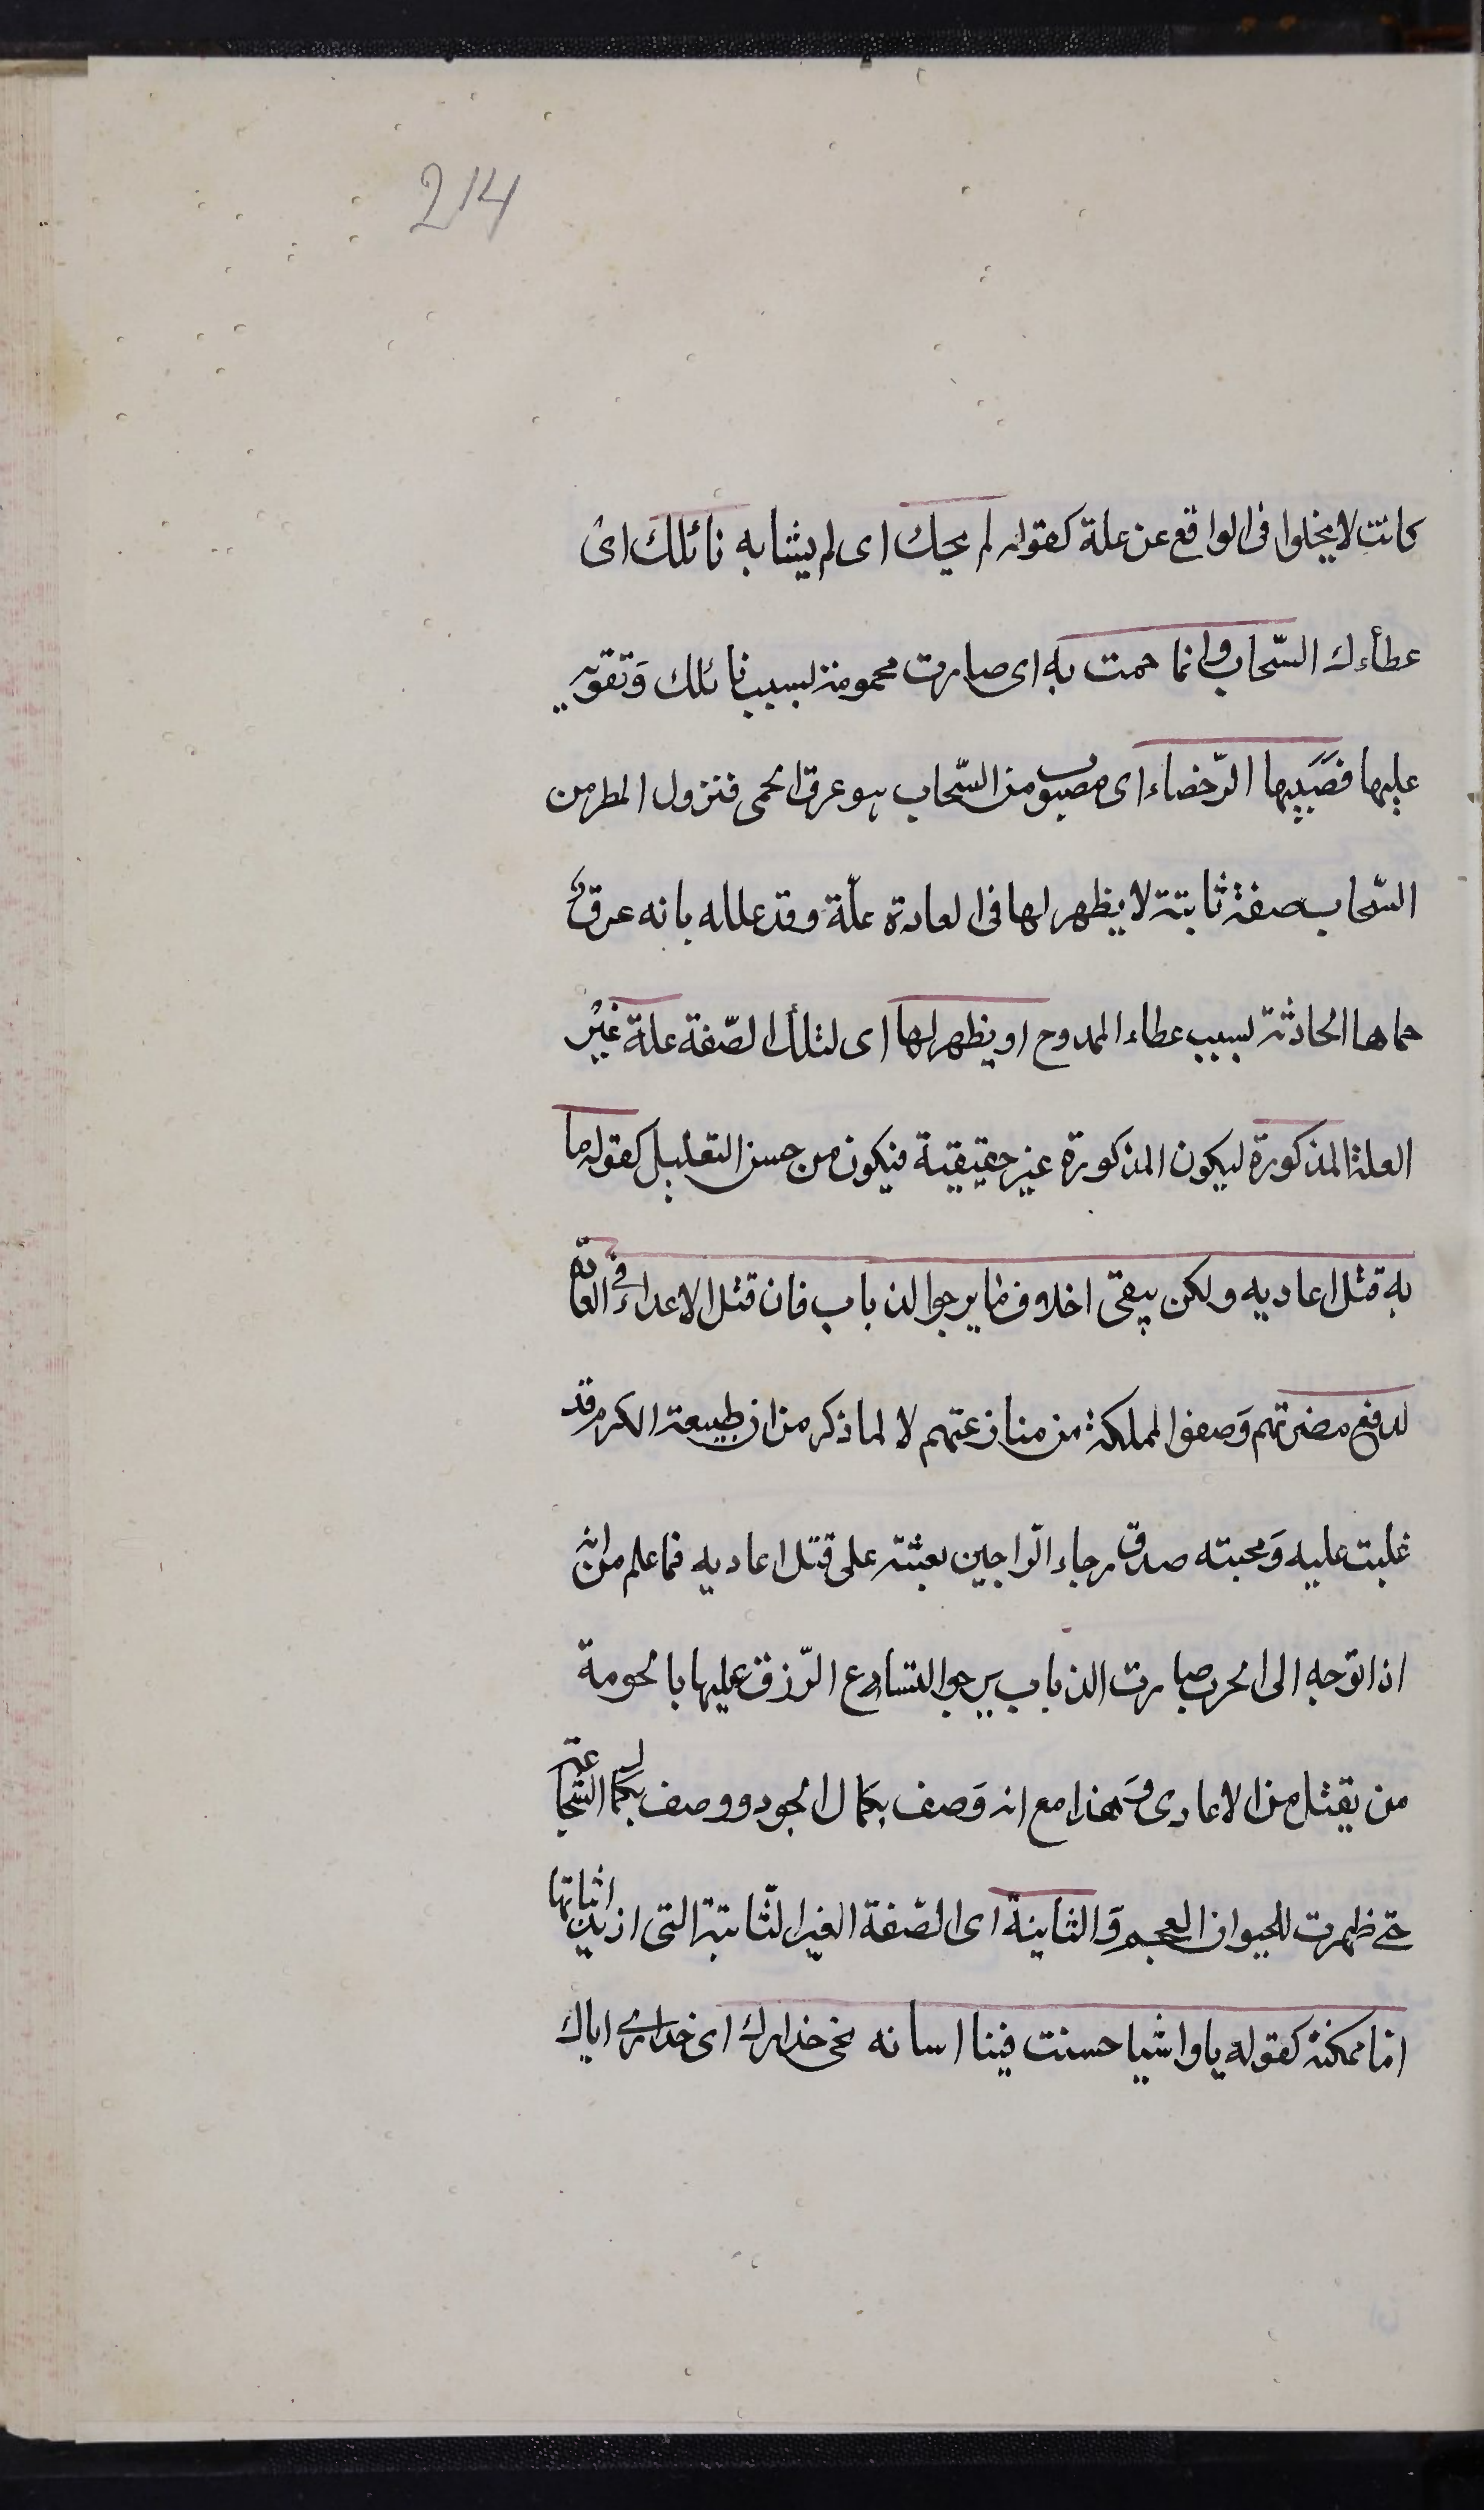 214
كانت لا يخلوا فى الواقع عن علة كقوله لم يحك اى لم يشابه نائلك اى
عطاءك السّحاب وانما حمت به اى صارت محمومة بسبب نائلك وَتفوقه
عليها فصَبيبها الرّخضاء اى مصبوب من السّحاب هو عرق الحمى فنزول المطر من
السّحاب صفة ثابتة لا يظهر لها فى العادة علّة وقد علله بانه عرق
حماها الحادثة بسبب عطاء الممدوح او يظهر لها اى لتلك الصّفة علة غير
العلة المذكورة ليكون المذكورة غير حقيقية فيكون من حسن التعليل كقوله ما
به قتل اعاديه ولكن يتقى اخلاف ما يرجوا لذباب فان قتل الاعداء فى العادة
لدفع مضرتهم وَصفو المملكة من منازعتهم لا لما ذكر من ان طبيعة الكرم قد
غلبت عليه وَمحبته صدق رجاء الرّاجين بعثته على قتل اعاديه فما علم من انه
اذا توجه الى الحرب صارت الذباب يرجوا لتسارع الرّزق عليها بالحومة
من يقتل من الاعادى وَهذا مع انه وَصف بكمال الجود ووصف بكمال الشّجاعة
حتى ظهرت للحيوان العجم وَالثانية اى الصّفة الغير الثّابتة التى اريد اثباتها
اما ممكنة كقوله يا واشيا حسنت فينا اسانه نجى حذارك اى حذارى اياك